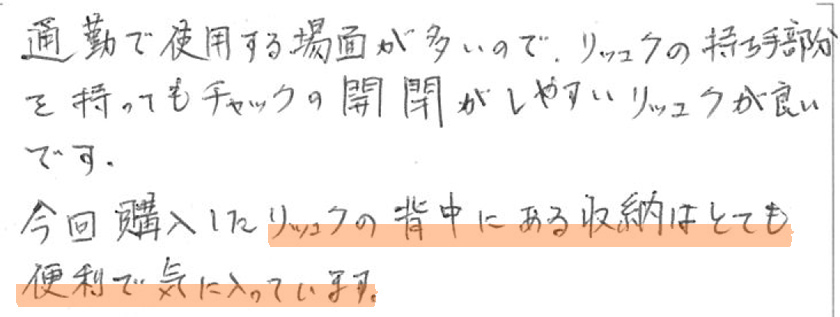 通勤で使用する場面が多いので、リュックの持ち手部分
を持ってもチャックの開閉がしやすいリュックが良い
です。
今回購入したリュックの背中にある収納はとても
便利で気に入っています。